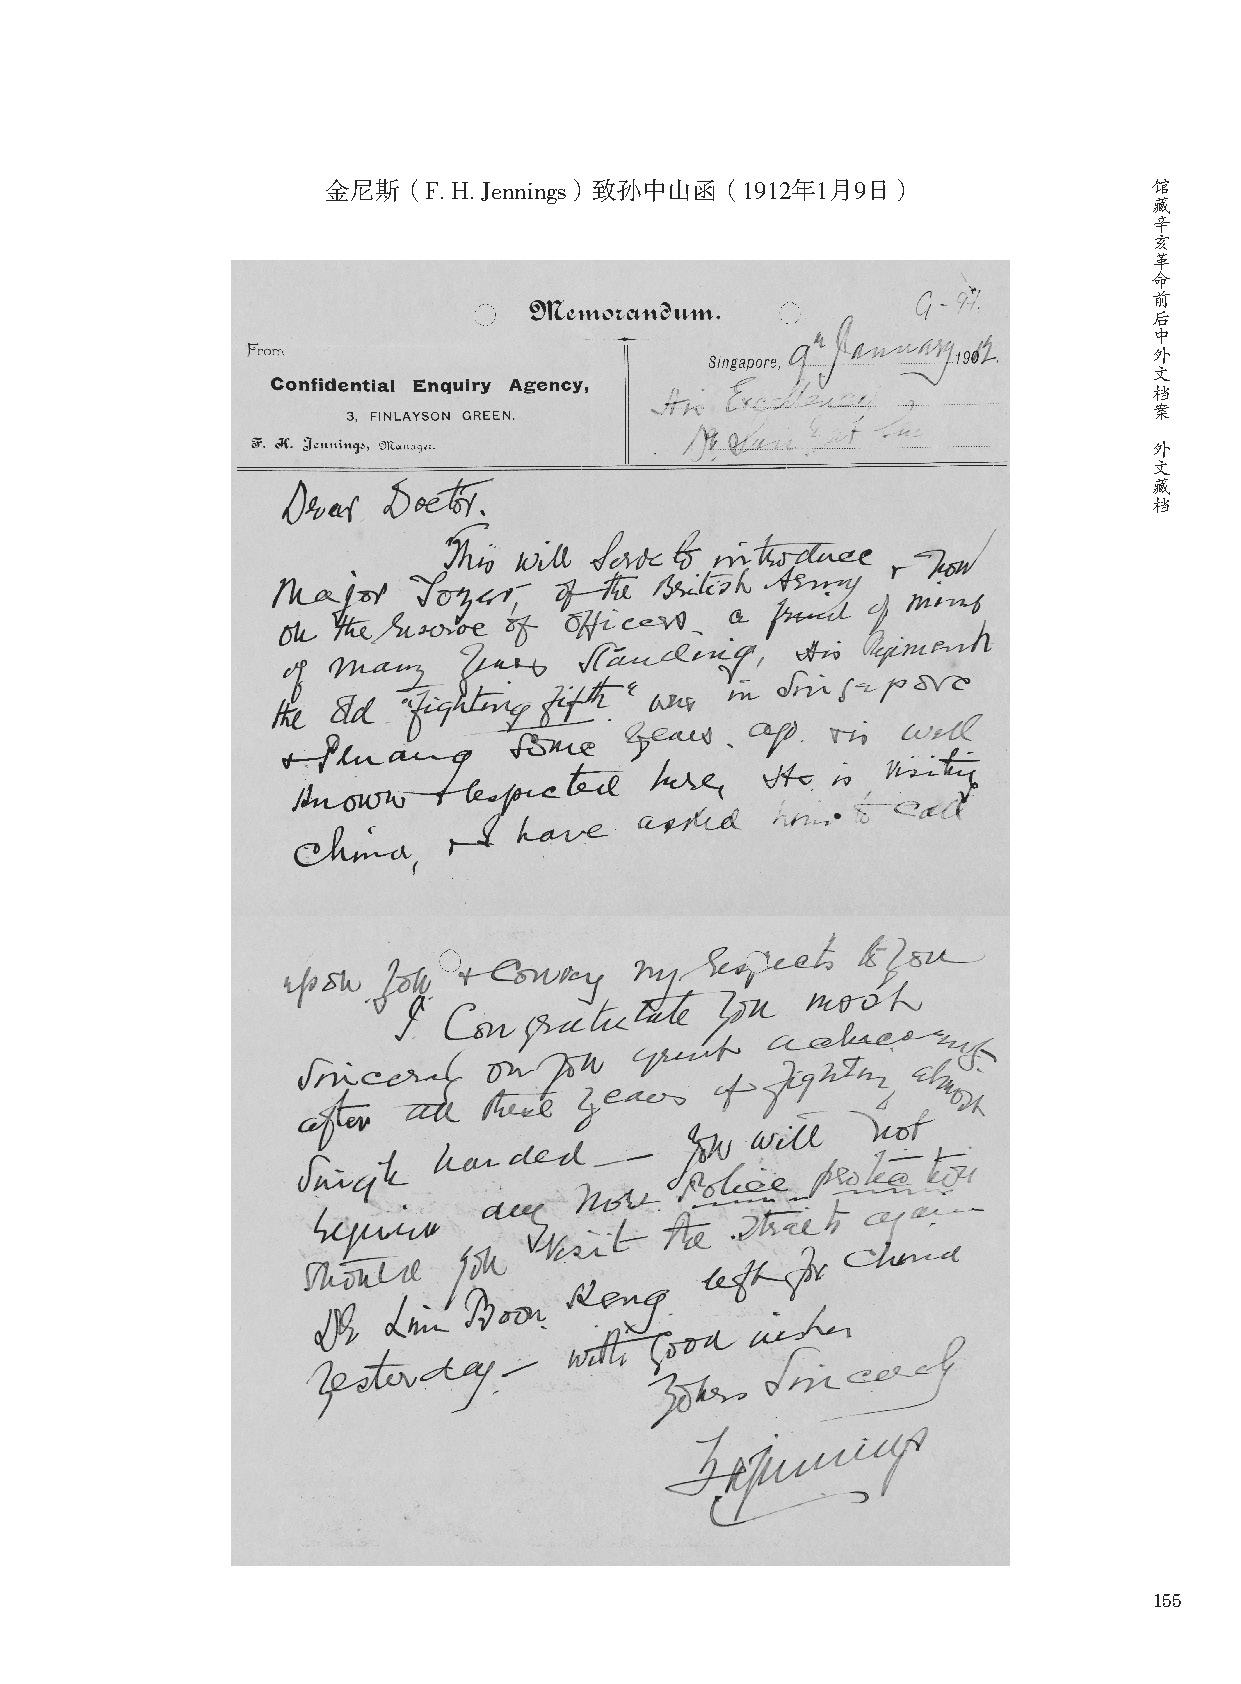 金尼斯（F. H. Jennings）致孙中山函（1912年1月9日）
馆藏辛亥革命前后中外文档案 外文藏档
G-97.
Memorandum.
From
Confidential Enquiry Agency,
3, FINLAYSON GREEN.
F. H. Jennings, Manager.
Singapore, 9th January 1912.
His Excellency
Dr. Sun Yat Sen
Dear Doctor.
This will serve to introduce
Major Tozer, of the British Army & now
on the reserve of Officers a friend of mine
of many years standing, His Regiment
the Old "Fighting Fifth" was in Singapore
& Penang some years ago. & is well
known & respected here, He is visiting
China, & I have asked him to call
upon you & convey my respects to you
I Congratulate you most
sincerely on your great achievement
after all these years of fighting almost
single handed — You will not
require any more Police protection
should you visit the Straits again
Dr Lim Boon Keng left for China
yesterday — with good wishes
Yours Sincerely
F H Jennings
155